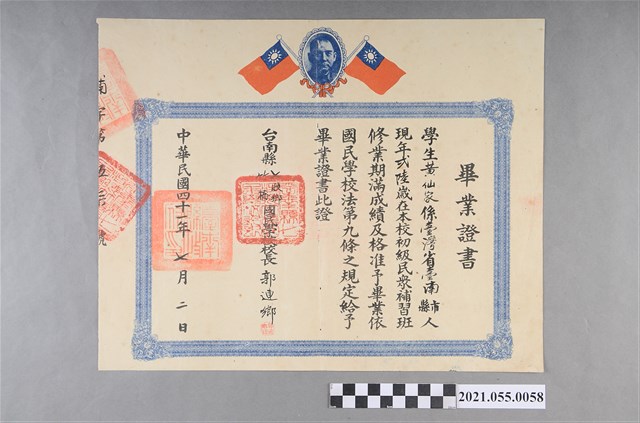 畢業證書
學生黃仙家係臺灣省臺南縣市人
現年弍陸歲在本校初級民眾補習班
修業期滿成績及格准予畢業依
國民學校法第九條之規定給予
畢業證書此證
台南縣
國民學校校長 郭連鄉
中華民國四十二年 七月 二日
字第
號
2021.055.0058